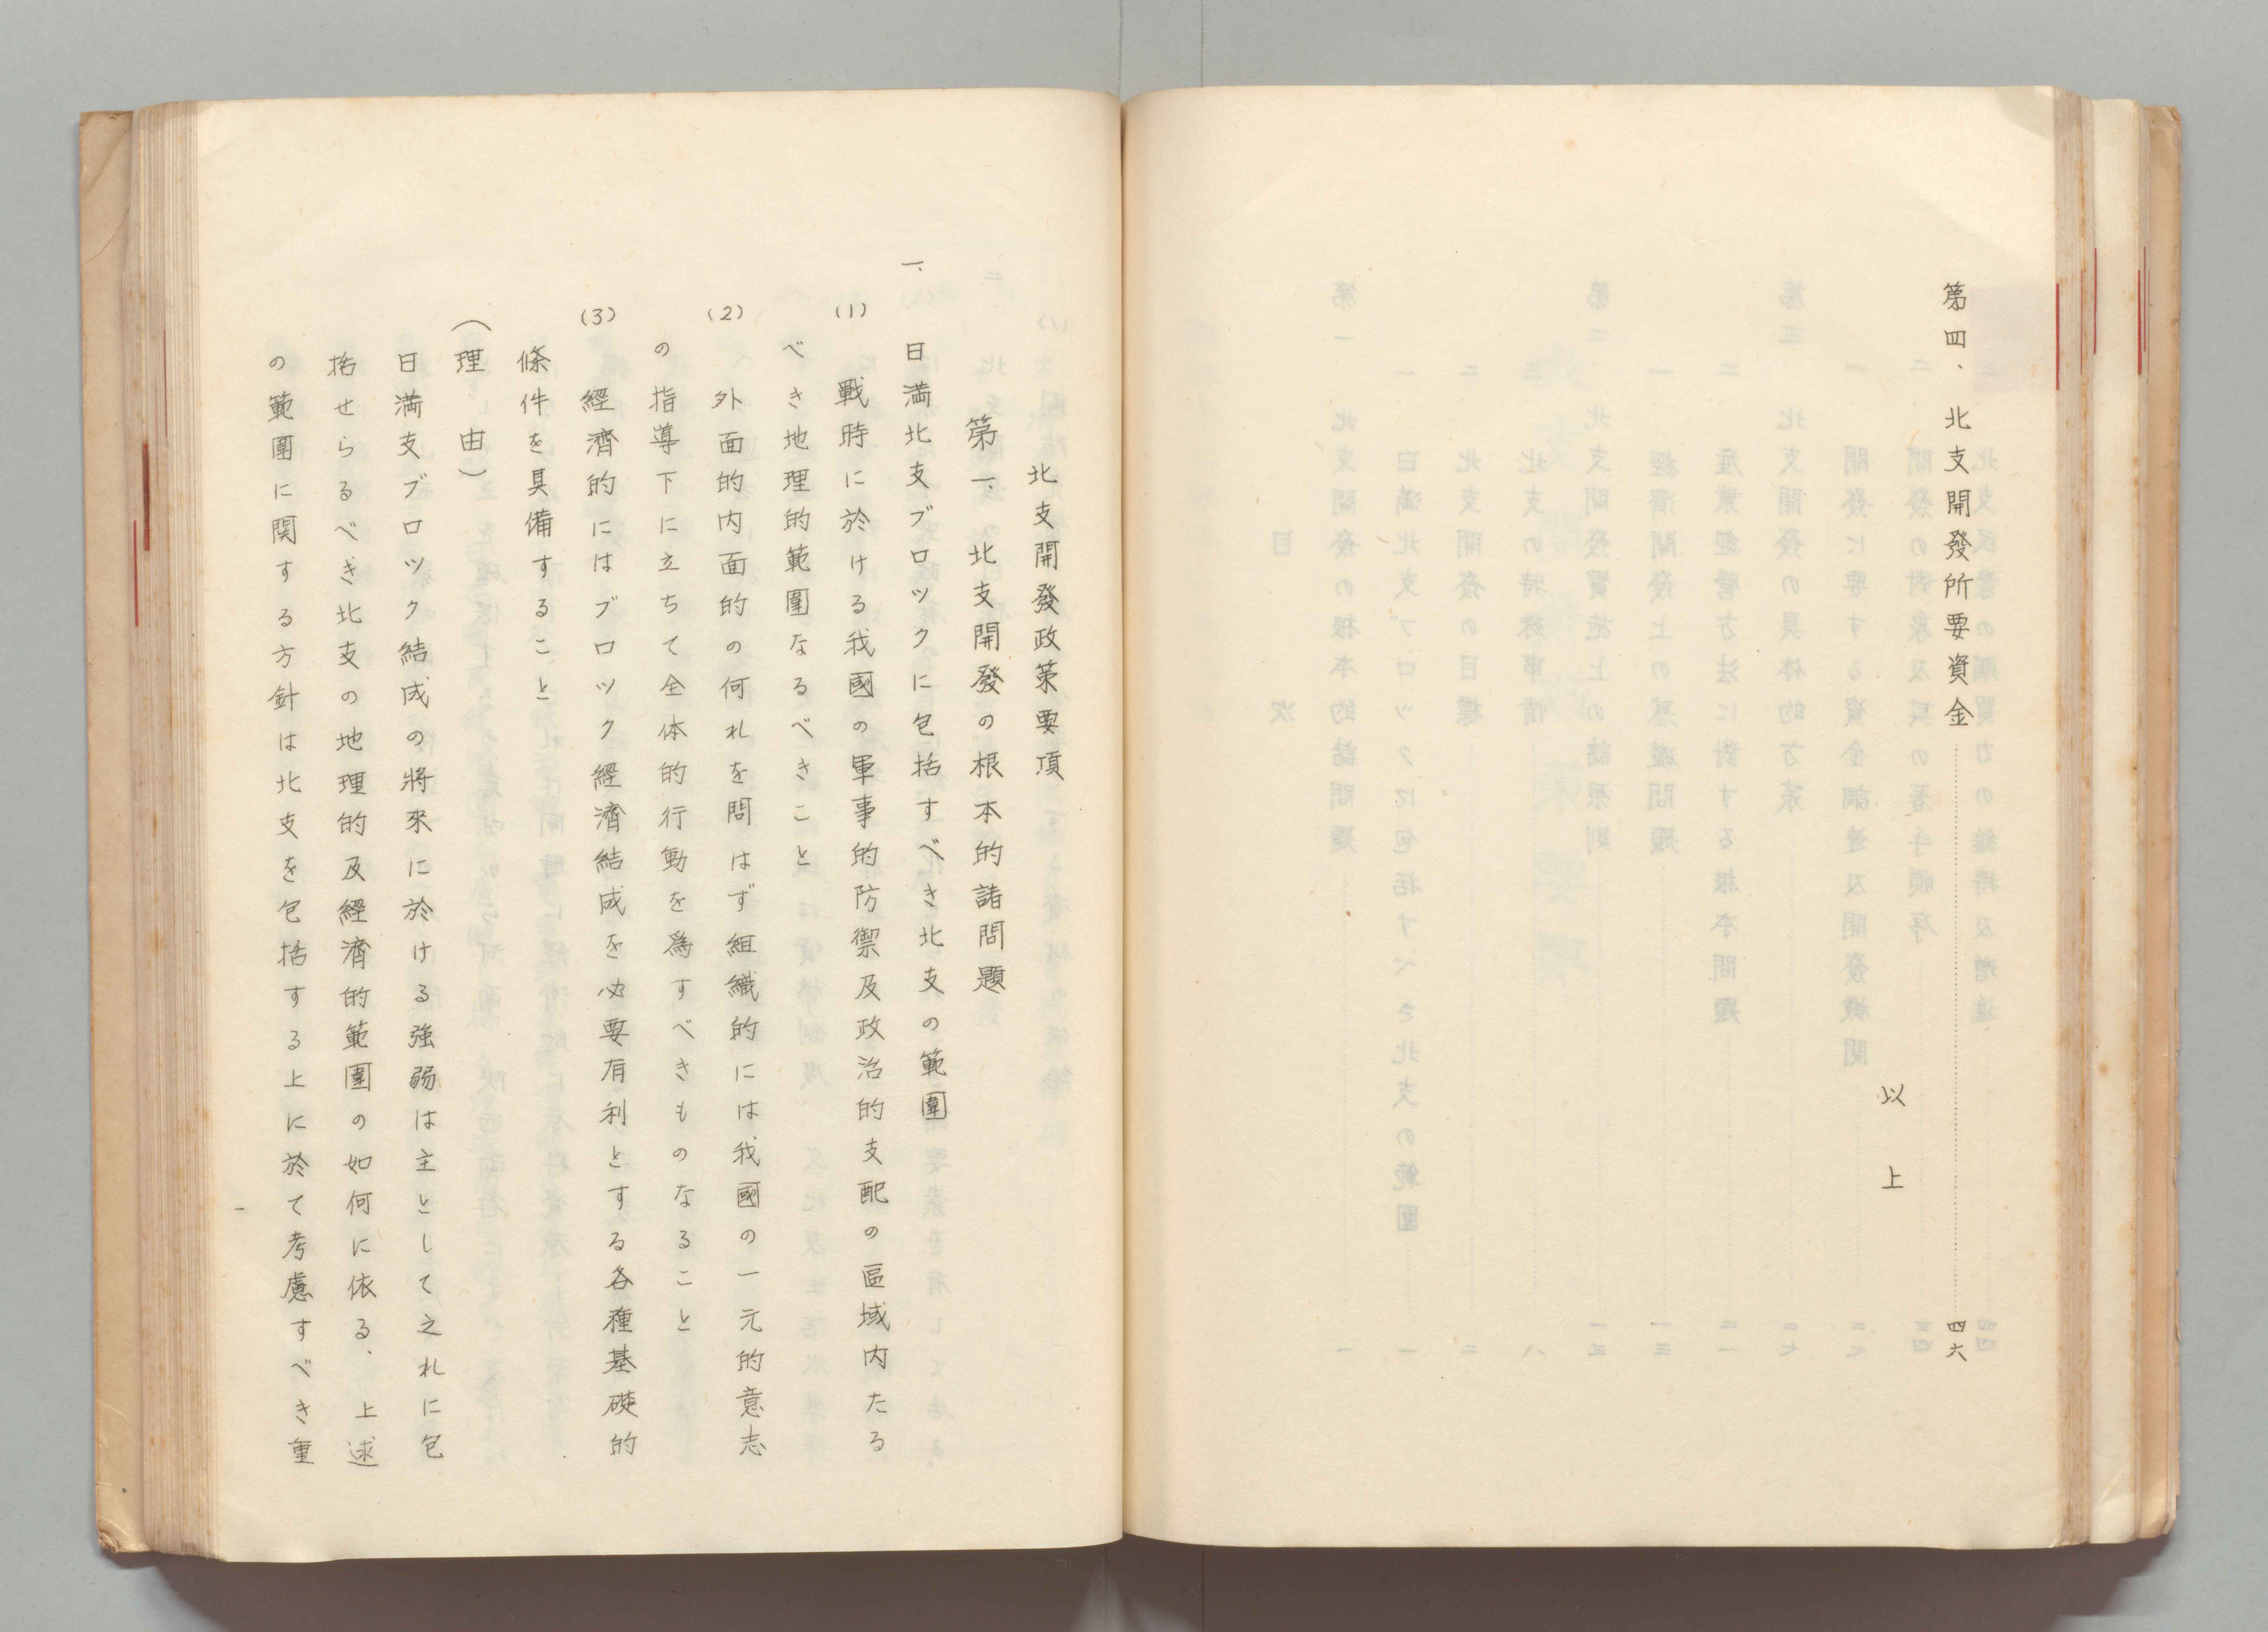 第四、北支開發所要資金………四六
以上
北支開發政策要項
第一、北支開發の根本的諸問題
一、日満北支ブロックに包括すべき北支の範圍
(1) 戰時に於ける我國の軍事的防禦及政治的支配の區域内たる
べき地理的範圍なるべきこと
(2) 外面的内面的の何れを問はず組織的には我國の一元的意志
の指導下に立ちて全体的行動を爲すべきものなること
(3) 經濟的にはブロック經濟結成を必要有利とする各種基礎的
條件を具備すること
(理由)
日満支ブロック結成の將來に於ける強弱は主として之れに包
括せらるべき北支の地理的及經濟的範圍の如何に依る、上述
の範圍に関する方針は北支を包括する上に於て考慮すべき重
一